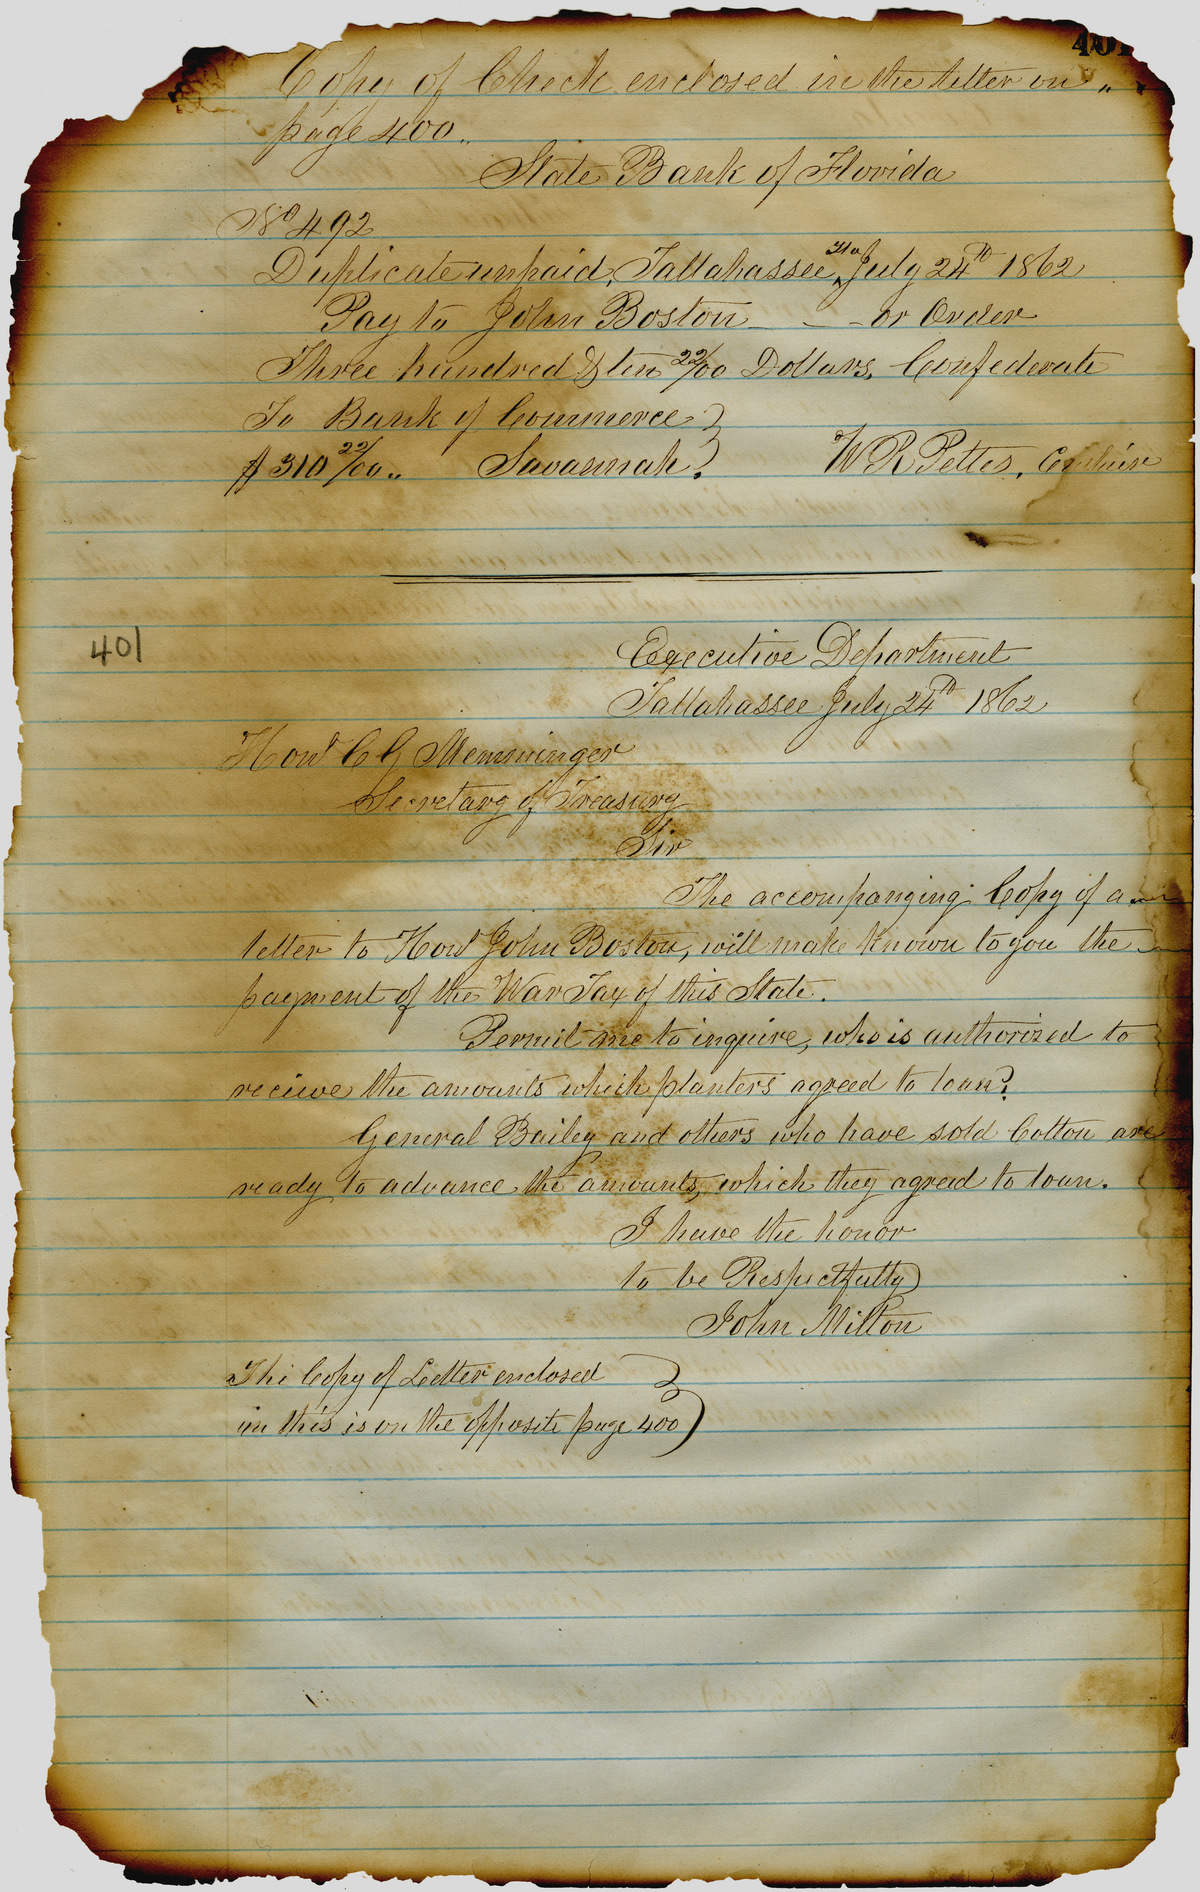 401
Copy of Check enclosed in the letter on "
page 400 "
State Bank of Florida
No 492
Duplicate unpaid, Tallahassee, Fla July 24th 1862
Pay to John Boston - - - or Order
Three hundred & ten 22/00 Dollars, Confederate
To Bank of Commerce }
$310 22/00 " Savannah. } W R Pettes, Cashier
401
Executive Department
Tallahassee July 24th 1862
Hon'l C G Memminger
Secretary of Treasury
Sir
The accompanying Copy of a
letter to Hon'l John Boston, will make known to you the
payment of the War Tax of this State.
Permit me to inquire, who is authorized to
recieve the amounts which planters agreed to loan?
General Bailey and others who have sold Cotton are
ready to advance the amounts, which they agreed to loan.
I have the honor
to be Respectfully
John Milton
The Copy of Letter enclosed }
in this is on the opposite page 400 }